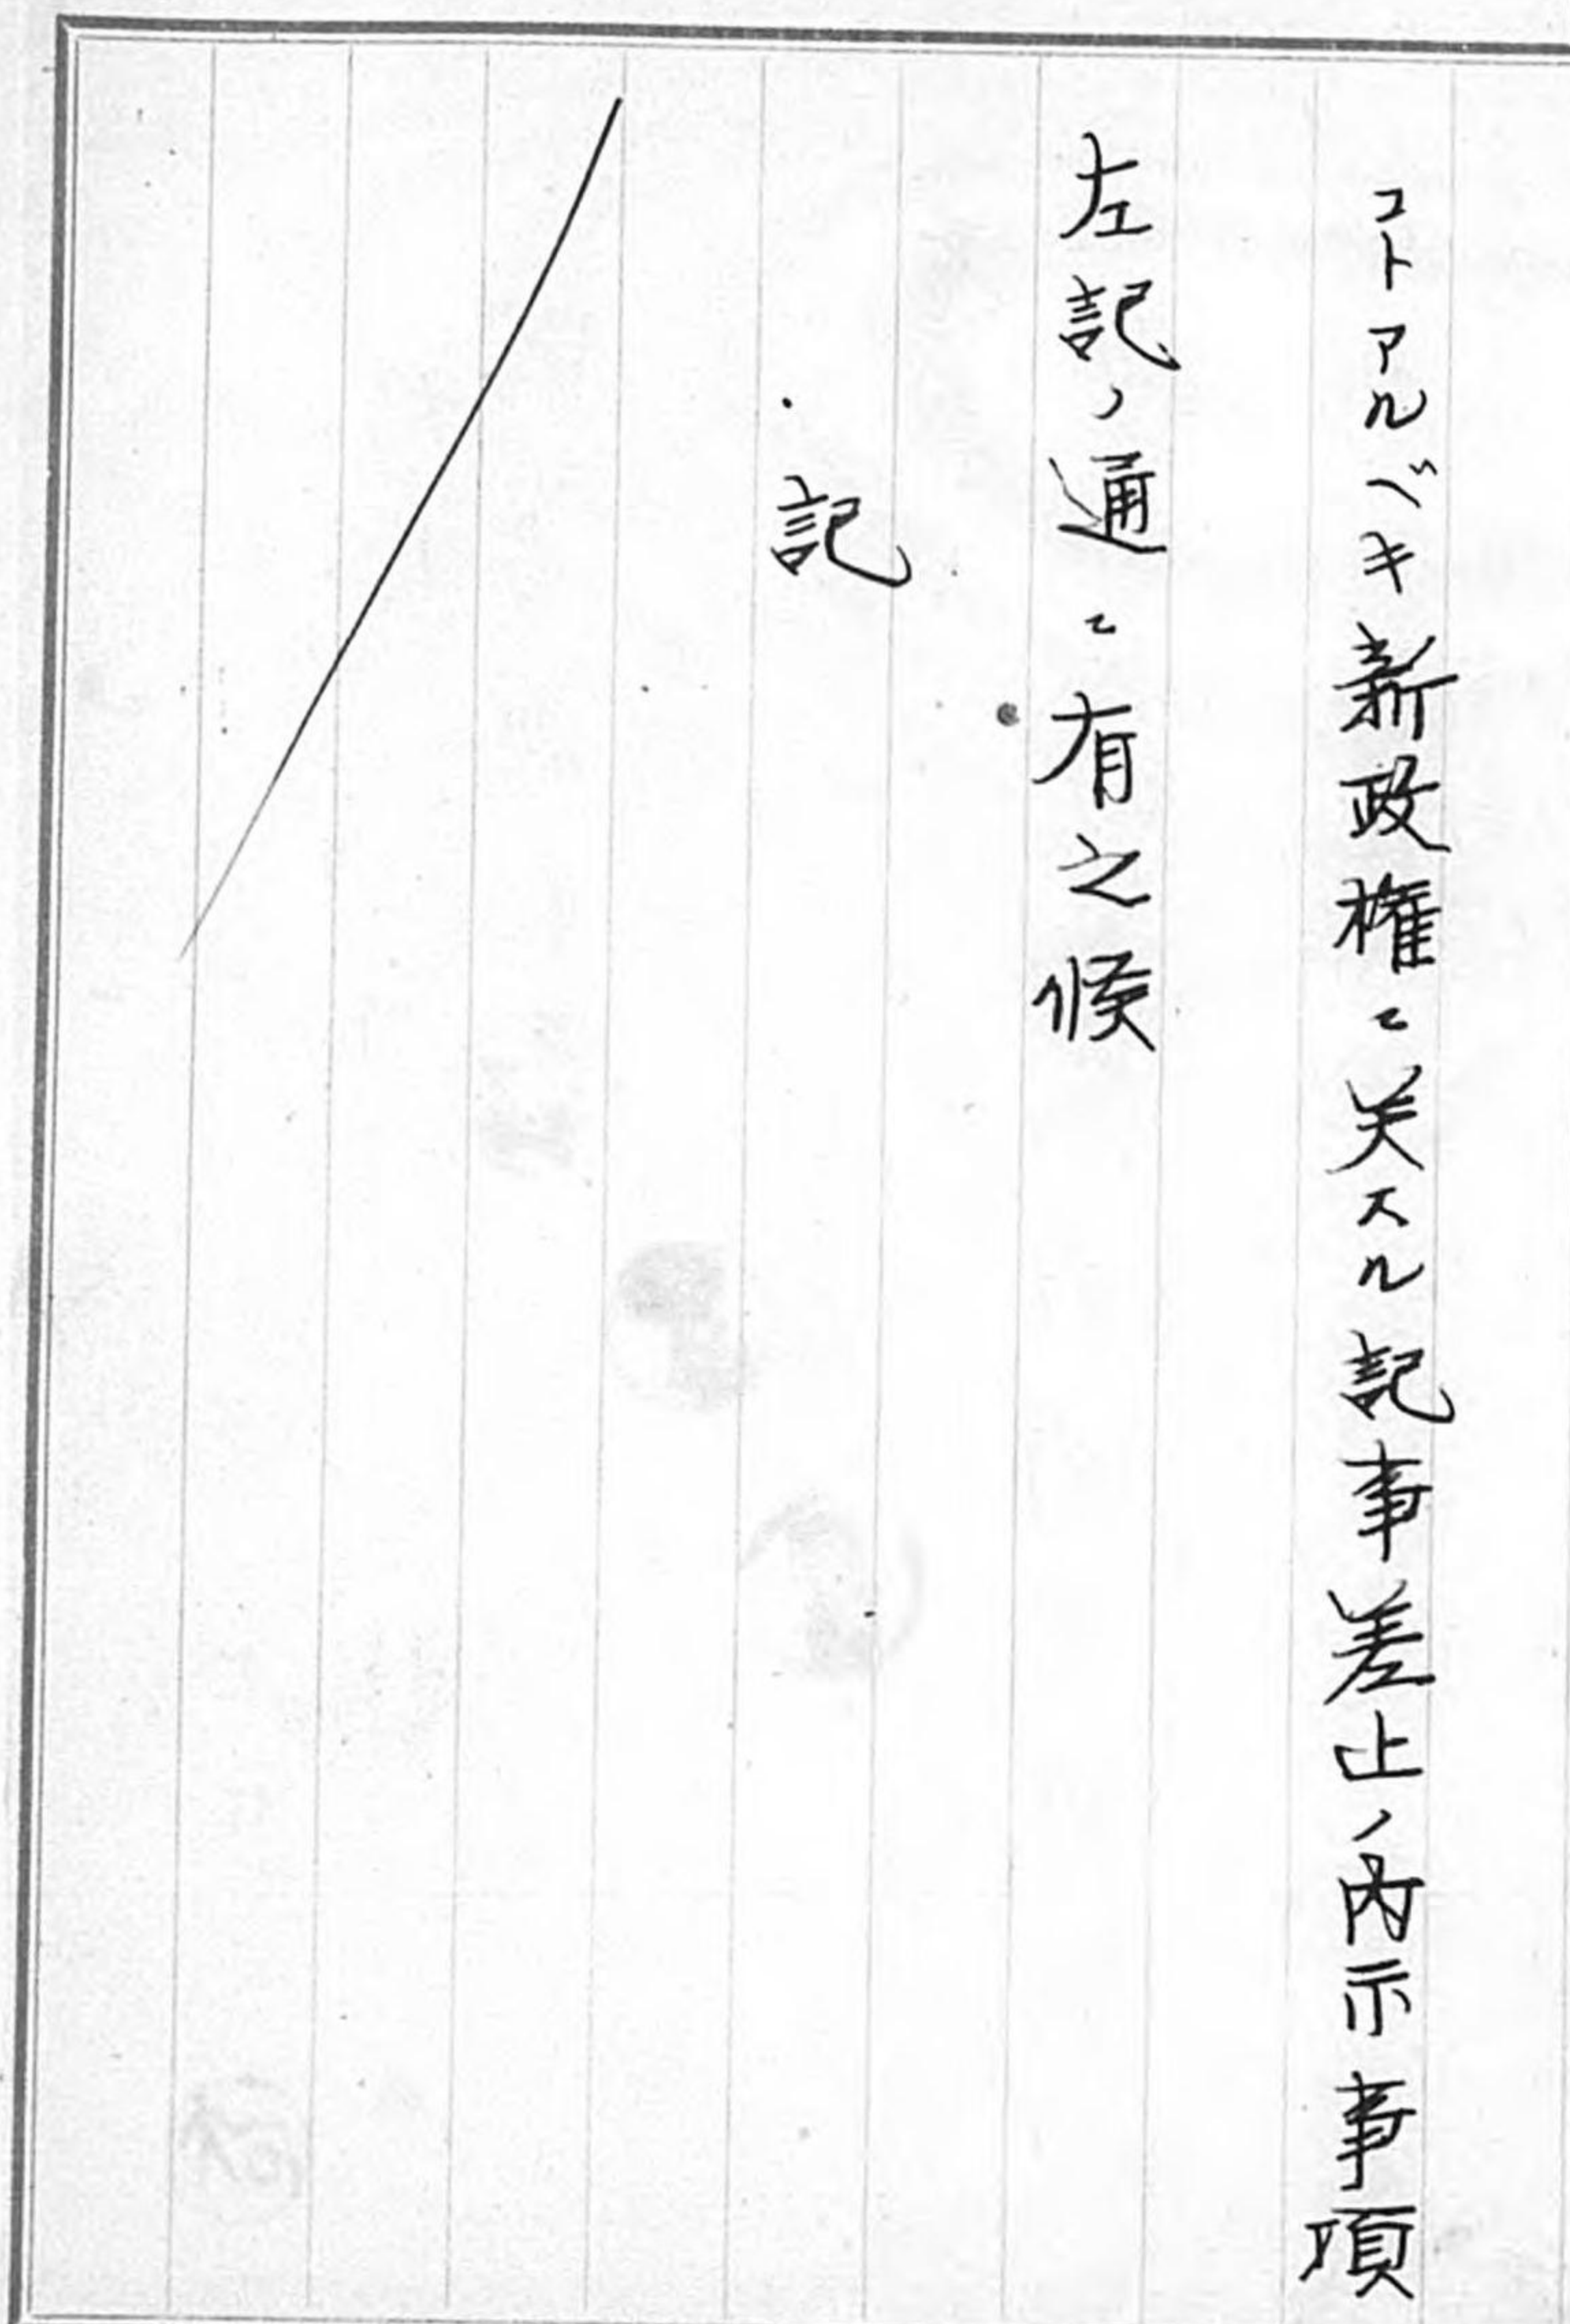 コトアルベキ新政権ニ関スル記事差止ノ内示事項
左記ノ通ニ有之候
記